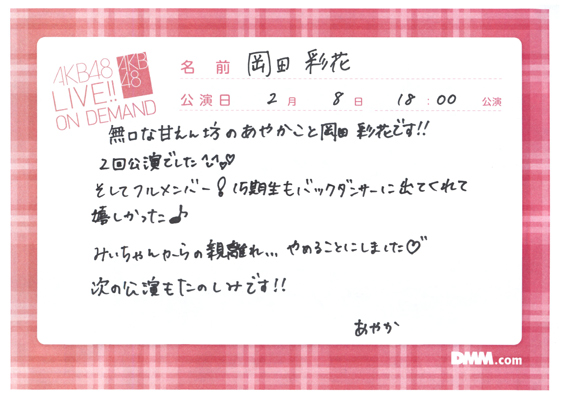 AKB48
LIVE!!
ON DEMAND
AKB
48
名前 岡田 彩花
公演日 2月 8日 18:00 公演
無口な甘えん坊のあやかこと岡田 彩花です!!
2回公演でした♡
そしてフルメンバー! 15期生もバックダンサーに出てくれて
嬉しかった♪
みぃちゃんからの親離れ... やめることにしました♡
次の公演もたのしみです!!
あやか
DMM.com